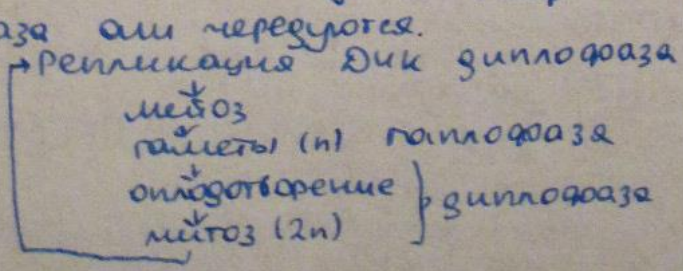 аза они чередуются.
→Репликация ДНК диплофаза
↓
мейоз
↓
гаметы (n) гаплофаза
↓
оплодотворение } диплофаза
↓
митоз (2n)